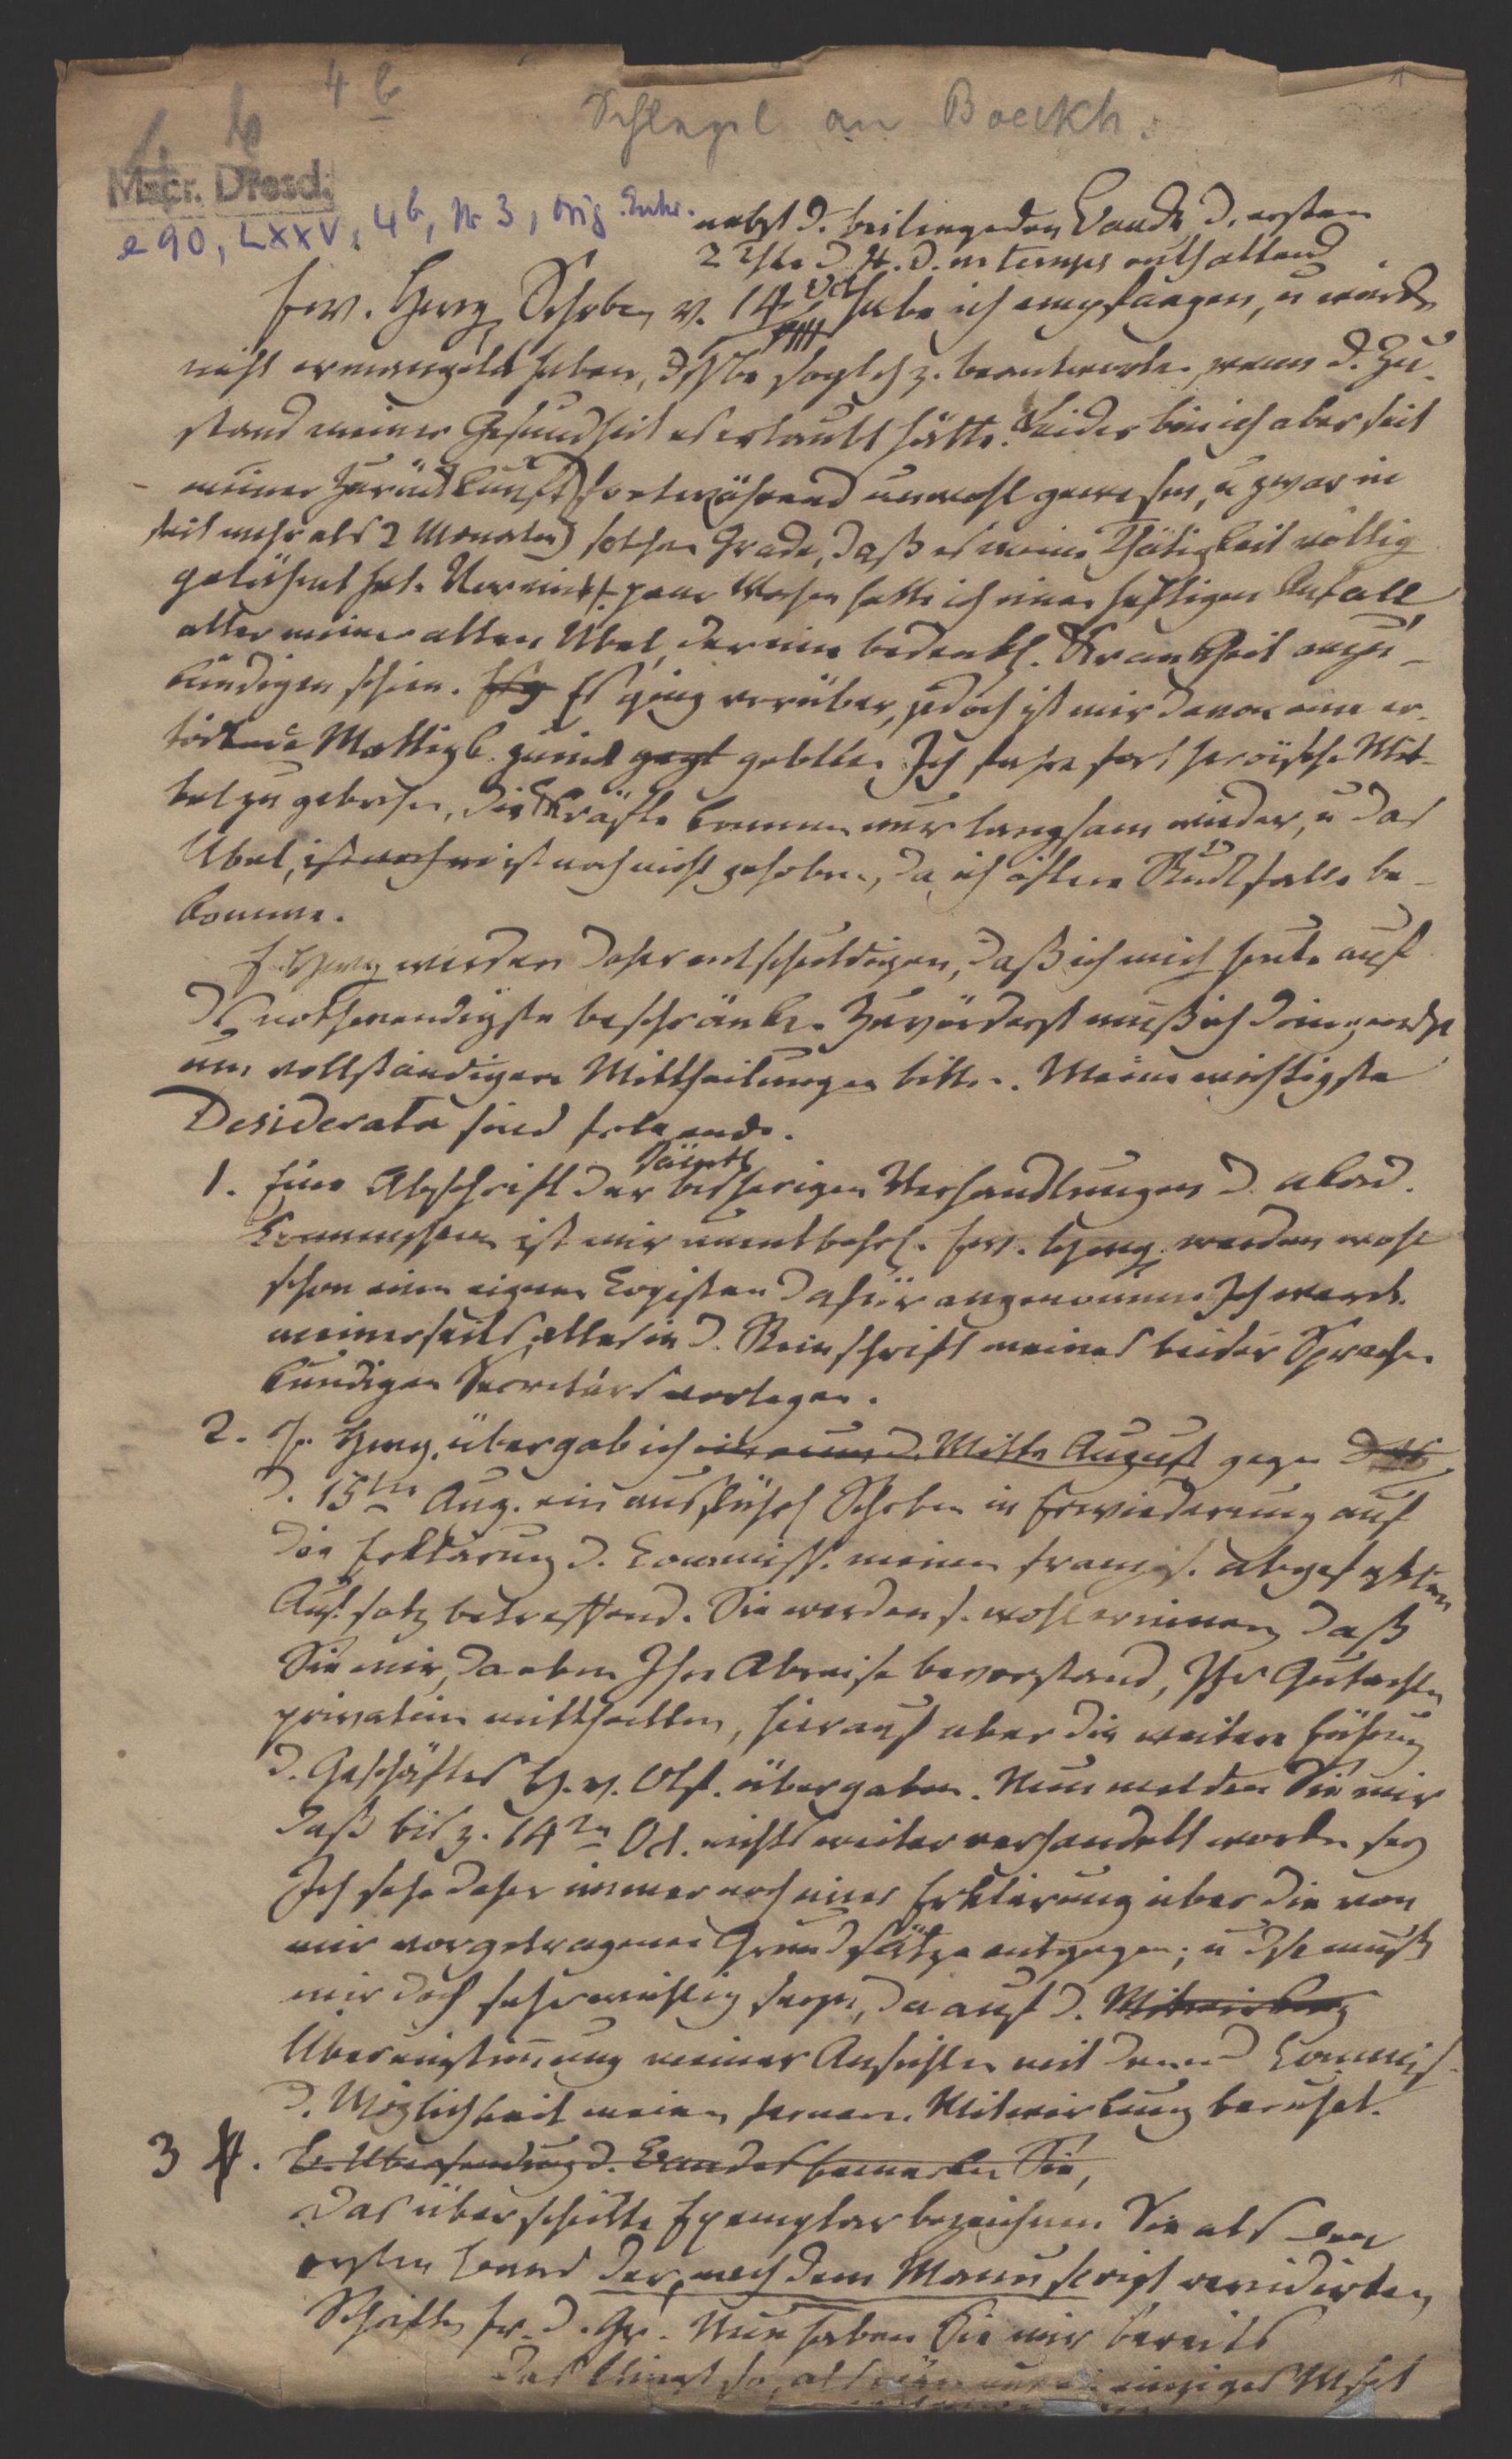 4 b
Schlegel an Boeckh.
Mscr. Dresd.
e 90, LXXV, 4b, Nr 3,
nebst d. beiliegenden Bande, d. ersten
2 Thle d. H. d. m. temps enthaltend
Ew. Hwg. Schrbn v. 14 Oct habe ich empfangen, u würde
nicht ermangelt haben, dsslbe sogleich z. beantworten, wenn d. Zu-
stand meiner Gesundheit es erlaubt hätte. Leider bin ich aber seit
meiner Zurückkunft fortwährend unwohl gewesen, u zwar in
seit mehr als 2 Monaten solchem Grade, daß es meine Thätigkeit völlig
gelähmt hat. Vor paar Wochen hatte ich einen heftigen Anfall
aller meiner alten Übel, der eine bedenkl. Krankheit anzu-
kündigen schien. Es ging vorüber, jedoch ist mir davon eine er-
tödtende Mattigk. zurück geblieben. Ich fahre fort heroische Mit-
tel zu gebrauchen, die Kräfte kommen nur langsam wieder, u das
Übel, ist noch nicht gehoben, da ich öftere Rückfälle be-
komme.
E. Hwg werden daher entschuldigen, daß ich mich heute auf
ds nothwendigste beschränke. Zuvörderst muß ich dringendst
um vollständigere Mittheilungen bitten. Meine wichtigsten
Desiderata sind folgende.
1. Eine Abschrift der sämtl bisherigen Verhandlungen d. akad.
Commission ist mir unentbehrl. Ew. Hwg. werden wohl
schon einen eignen Copisten dafür angenommen. Ich werde
meinerseits alles in d. Reinschrift meines beider Sprachen
kundigen Secretärs vorlegen.
2. Ew. Hwg. übergab ich Mitte August gegen
d. 15ten Aug. ein ausführl Schrbn in Erwiederung auf
die Erklärung d. Commiss. meinen französ. abgefaßten
Aufsatz betreffend. Sie werden s. wohl erinnern, daß
Sie mir, da eben Ihre Abreise bevorstand, Ihr Gutachten
privatim mittheilten, hierauf aber die weitere Führung
d. Geschäftes H. v. Olf. übergaben. Nun melden Sie mir
daß bis z. 14ten Oct. nichts weiter verhandelt worden sey
Ich sehe daher immer noch einer Erklärung über die von
mir vorgetragenen Grundsätze entgegen; u dse muß
mir doch sehr wichtig seyn, da auf d. Mitwirkung
Übereinstimmung meiner Ansichten mit denen d Commiss.
d. Möglichkeit meiner fernern Mitwirkung beruhet.
3 . Übersendung d. Bandes bemerken Sie,
Das überschickte Exemplar bezeichnen Sie als den
ersten Band der, nach dem Manuscript revidirten
Schriften Fr. d. Gr. Nun haben Sie mir bereits
Das klingt so, als einziges Mscpt